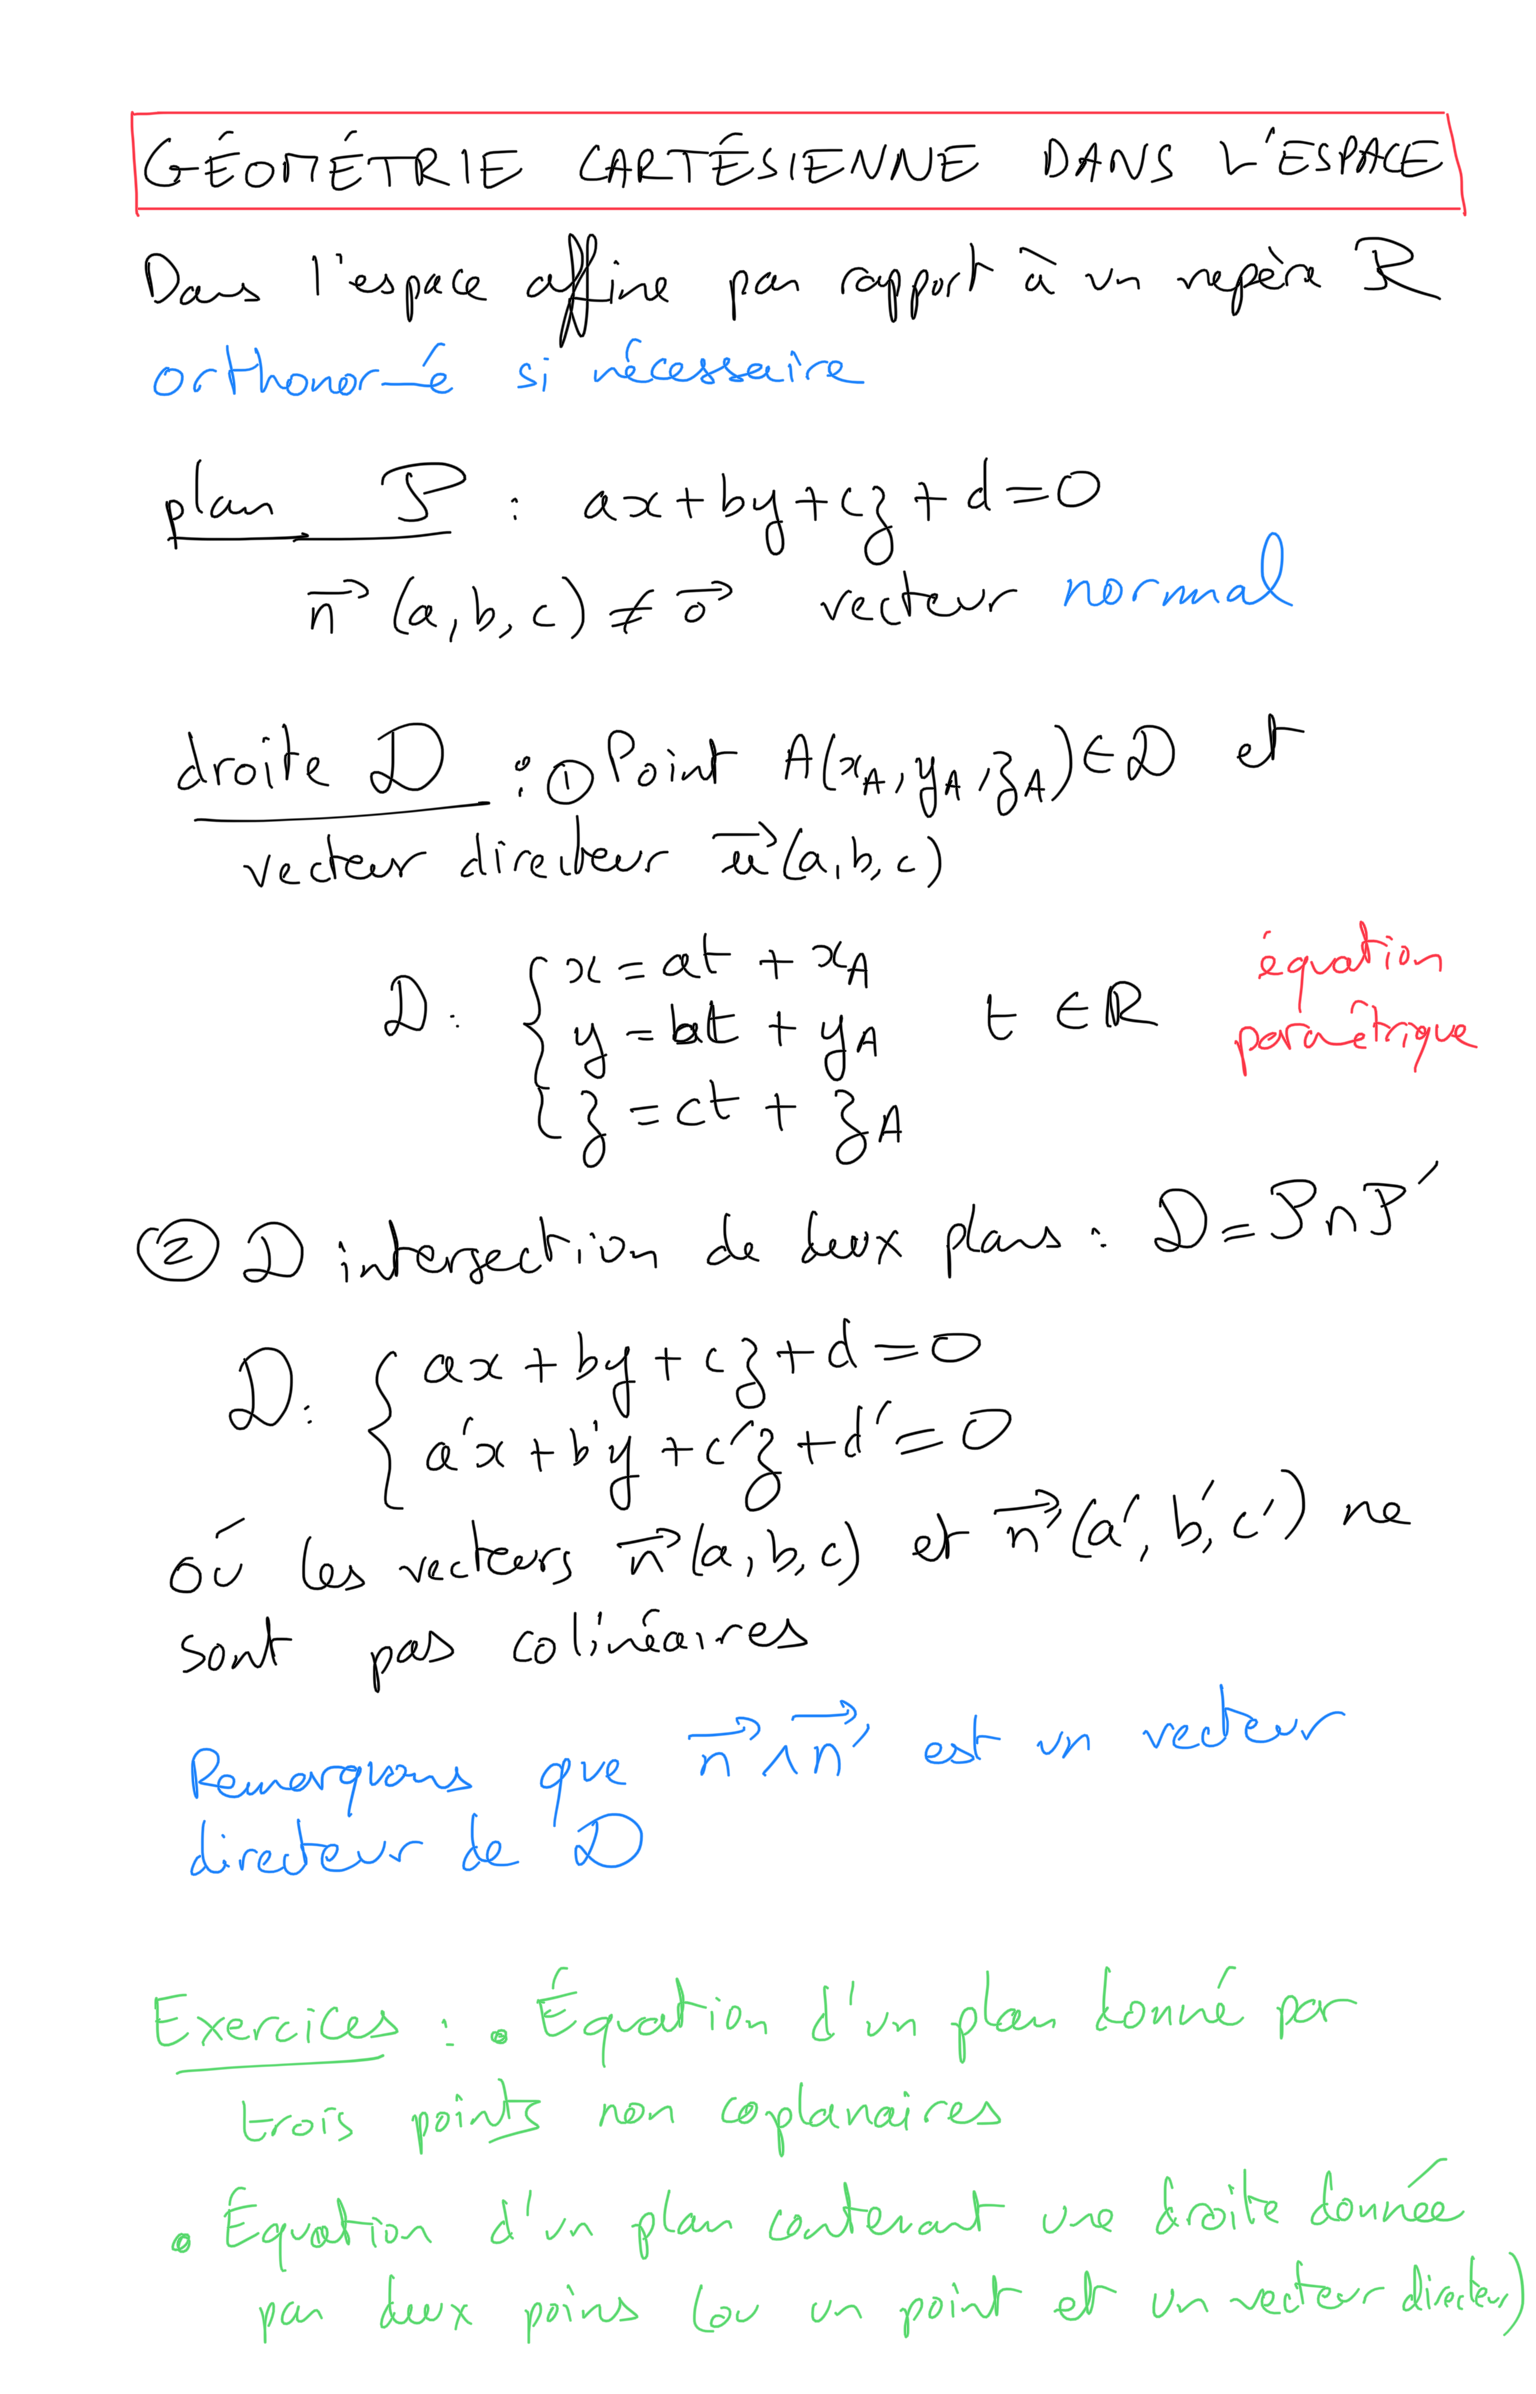 GÉOMÉTRIE CARTÉSIENNE DANS L'ESPACE
Dans l'espace affine par rapport à un repère R
orthonormé si nécessaire
plan P : ax+by+cz+d=0
n⃗ (a,b,c) ≠ o⃗ vecteur normal
droite D : ① Point A(x_A, y_A, z_A) ∈ D et
vecteur directeur u⃗(a,b,c)
D : { x = at + x_A
y = bt + y_A t ∈ ℝ
z = ct + z_A
équation
paramètrique
② D intersection de deux plans : D = P ∩ P'
D : { ax + by + cz + d = 0
a'x + b'y + c'z + d' = 0
où les vecteurs n⃗(a,b,c) et n⃗'(a',b',c') ne
sont pas colinéaires
Remarquons que n⃗ ∧ n⃗' est un vecteur
directeur de D
Exercices : • Équation d'un plan donné par
trois points non coplanaires
• Équation d'un plan contenant une droite donnée
par deux poins (ou un point et un vecteur directeur)